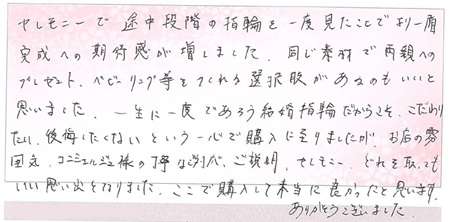 セレモニーで途中段階の指輪を一度見たことでより一層
完成への期待感が増しました。同じ素材で両親への
プレゼント、ベビーリング等をつくれる選択肢があるのもいいと
思いました。一生に一度であろう結婚指輪だからこそ、こだわり
たい、後悔したくないという一心で購入に至りましたが、お店の雰
囲気、コンシェルジュ様の丁寧な対応、ご説明、セレモニー、どれを取っても
いい思い出となりました。ここで購入して本当に良かったと思います。
ありがとうございました。